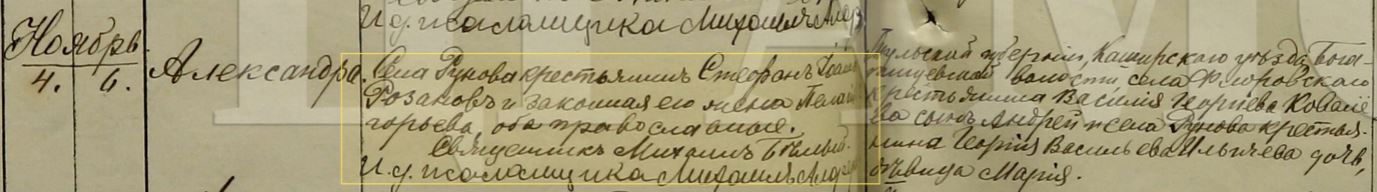 И. д. псаломщика Михаилъ
Ноябрь
4. 6. Александра.
Села Рунова крестьянинъ Стефанъ
Розановъ и законная его жена
горьева, оба православные.
Священникъ Михаилъ Бѣлый.
И. д. псаломщика Михаилъ
Тульской губерніи, Каширскаго уѣзда, Бога-
тищевской волости села
крестьянина Василія Георгіева Ковале-
ва сынъ Андрей и села Рунова крестья-
нина Георгія Васильева Ильичева дочь,
дѣвица Марія.